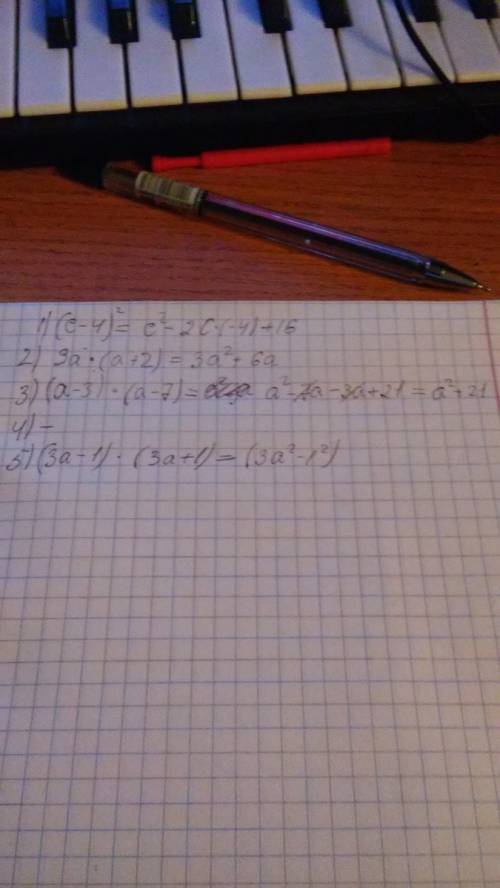 1) (c-4)² = c²-2c·(-4)+16
2) 3a·(a+2) = 3a²+6a
3) (a-3)·(a-7) = a²-7a-3a+21 = a²+21
4) -
5) (3a-1)·(3a+1) = (3a²-1²)